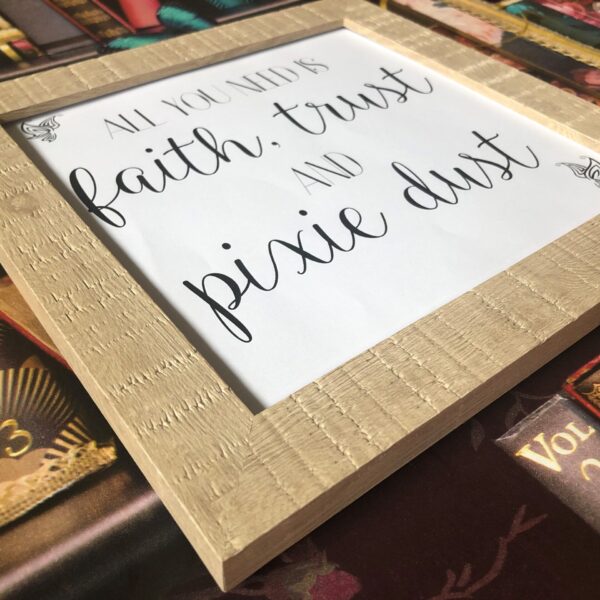 ALL YOU NEED IS
faith, trust
AND
pixie dust
3
VOL
2